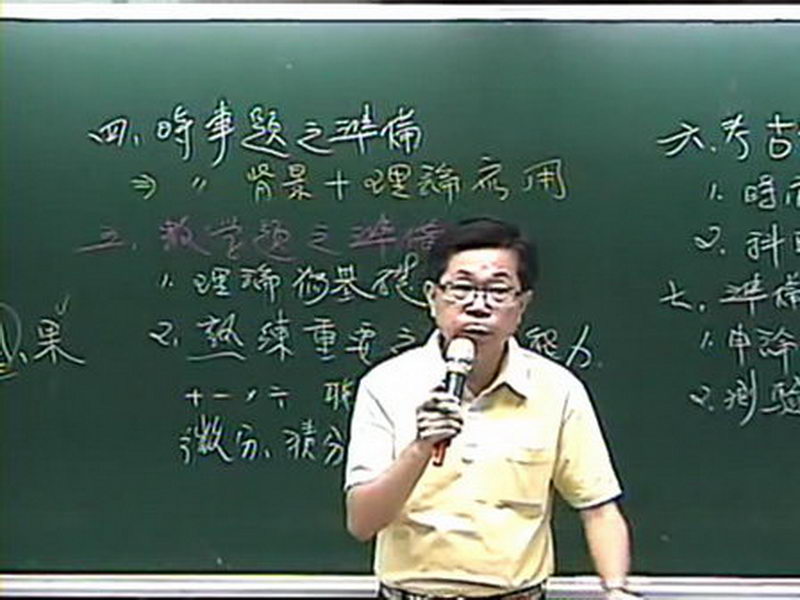 四、時事題之準備
⇒ 〃 背景+理論应用
五、数学題之準備
1. 理論仍基礎
2. 熟練重要之 能力.
+ - × ÷ 聯
微分、積分
果
六、考古
1. 時
2. 科目
七、準備
1. 申論
2. 測驗